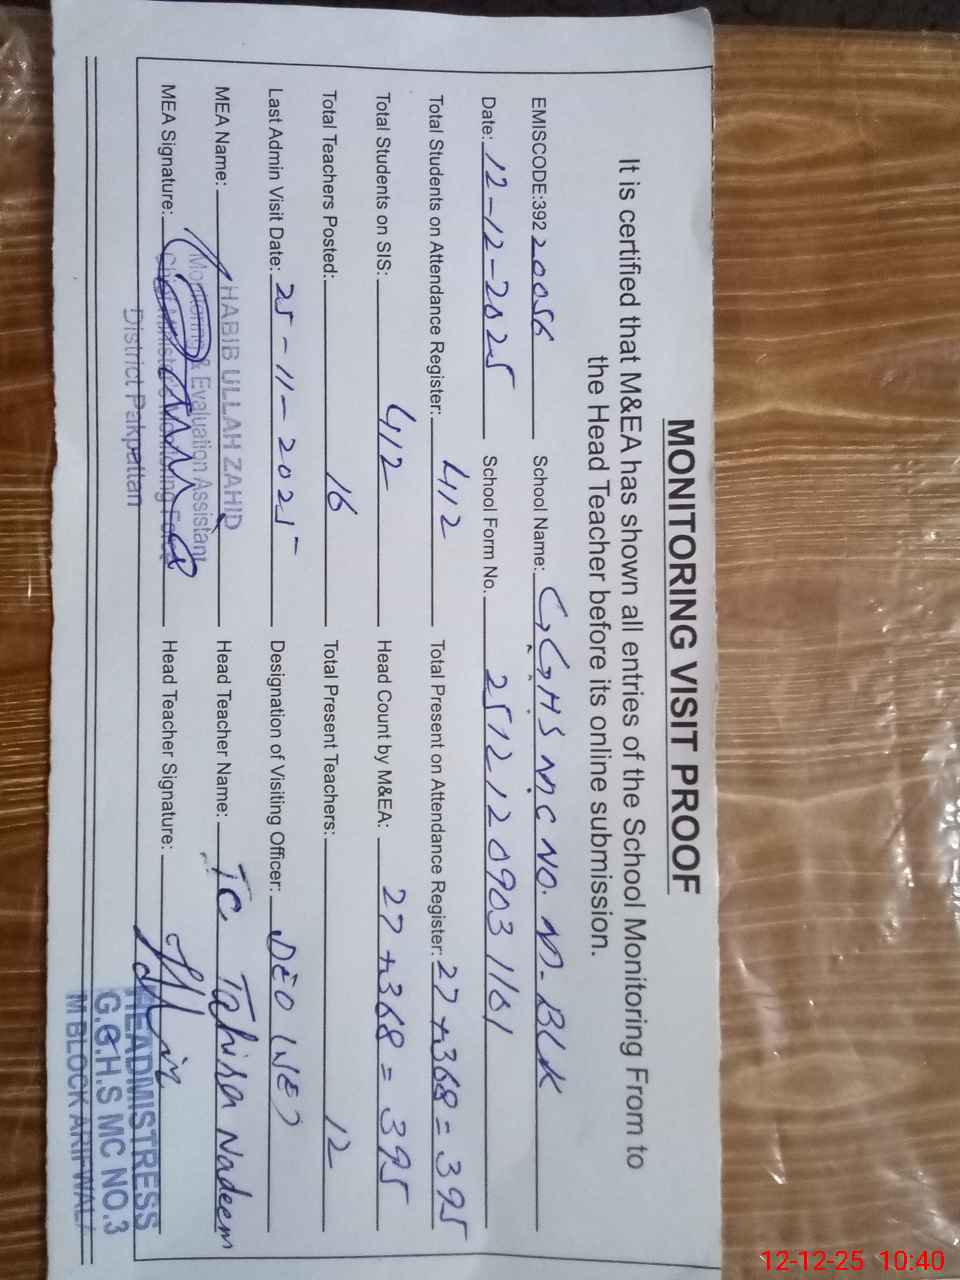 MONITORING VISIT PROOF
It is certified that M&EA has shown all entries of the School Monitoring From to
the Head Teacher before its online submission.
EMISCODE:392 20056 School Name: GGHS MC NO. M-BLK
Date: 12-12-2025 School Form No. 25121209031161
Total Students on Attendance Register: 412 Total Present on Attendance Register: 27+368=395
Total Students on SIS: 412 Head Count by M&EA: 27+368=395
Total Teachers Posted: 16 Total Present Teachers: 12
Last Admin Visit Date: 25-11-2025 Designation of Visiting Officer: DEO (WE)
MEA Name: HABIB ULLAH ZAHID Head Teacher Name: TC Tahira Nadeem
Monitoring & Evaluation Assistant
MEA Signature: Head Teacher Signature:
District Pakpattan
HEADMISTRESS
G.G.H.S MC NO.3
M BLOCK ARIFWALA
12-12-25 10:40